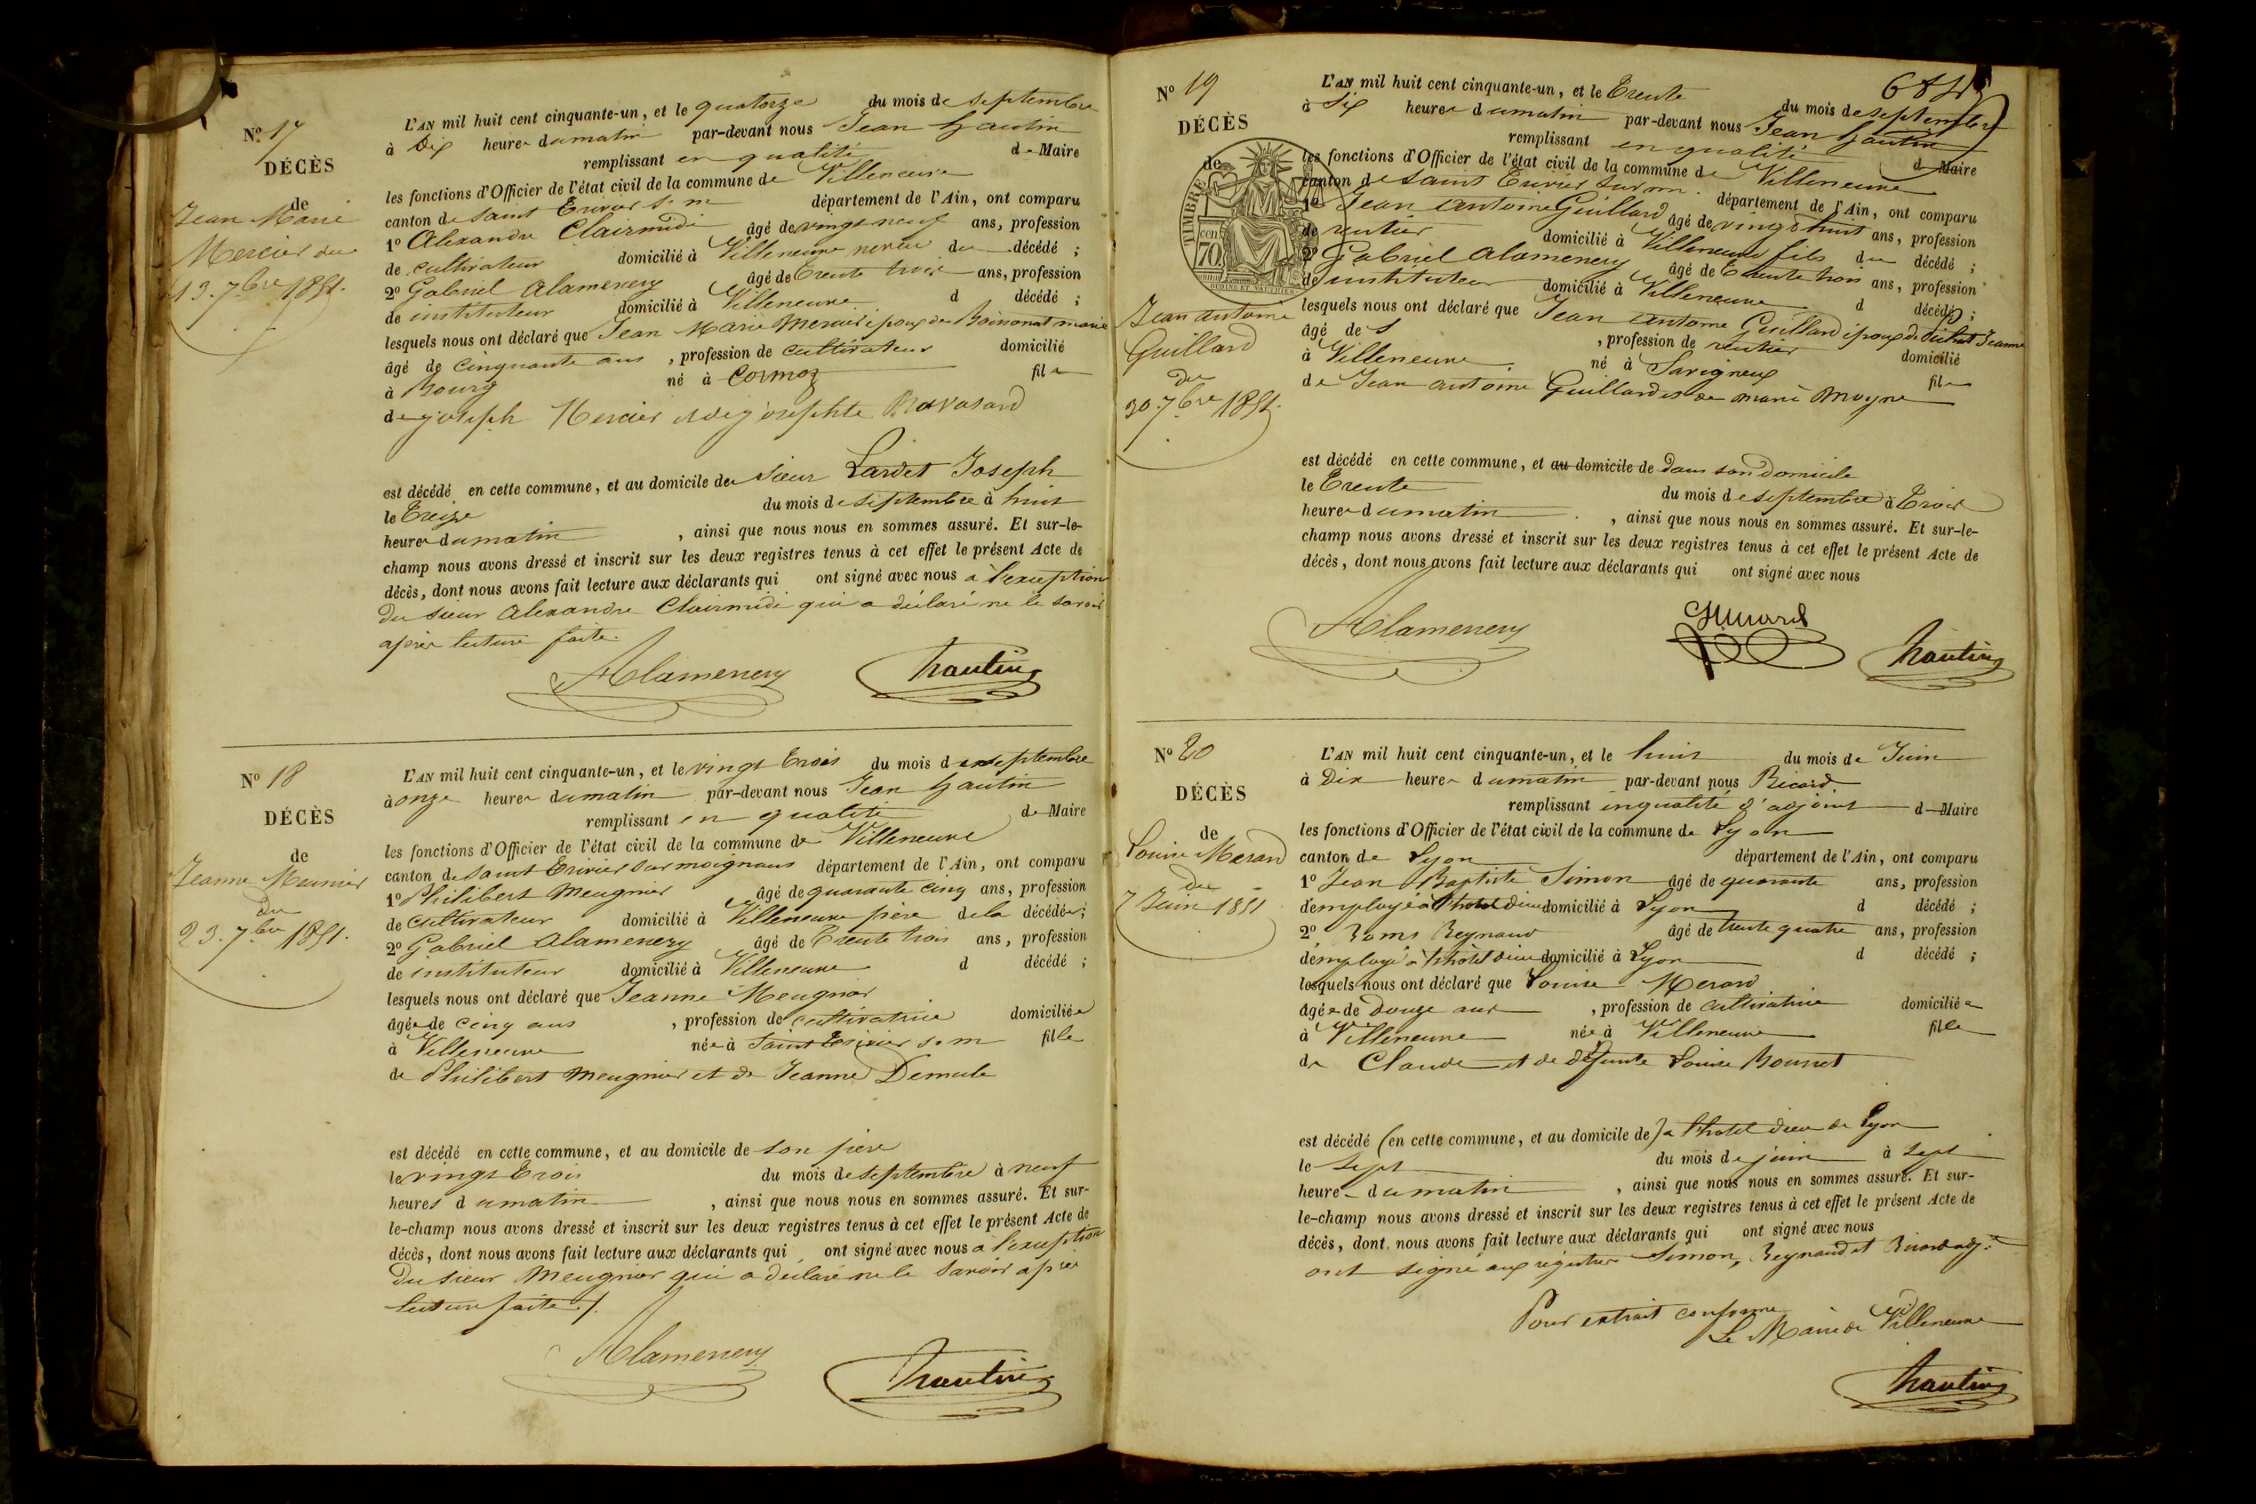 N.º 17
DÉCÈS
de
Jean Marie
Mercier du
13. 7bre 1851.
L'AN mil huit cent cinquante-un, et le quatorze du mois de septembre
à Dix heures du matin par-devant nous Jean
remplissant en qualité de Maire
les fonctions d'Officier de l'état civil de la commune de Villeneuve
canton de saint Trivier s. m département de l'Ain, ont comparu
1º Alexandre Clairmidi âgé de vingt neuf ans, profession
de cultivateur domicilié à Villeneuve neveu du décédé ;
2º Gabriel Alamenery âgé de Trente trois ans, profession
de instituteur domicilié à Villeneuve d décédé ;
lesquels nous ont déclaré que Jean Marie Mercier époux de Boissonnat marie
âgé de cinquante ans , profession de cultivateur domicilié
à Bourg né à Cormoz fils
de joseph Mercier et de josephte
est décédé en cette commune, et au domicile de sieur Lardet Joseph
le Treize du mois de septembre à huit
heures du matin , ainsi que nous nous en sommes assuré. Et sur-le-
champ nous avons dressé et inscrit sur les deux registres tenus à cet effet le présent Acte de
décès, dont nous avons fait lecture aux déclarants qui ont signé avec nous à l'exception
du sieur Alexandre Clairmidi qui a déclaré ne le savoir
après lecture faite.
Alamenery
Nº 18
DÉCÈS
de
Jeanne Meunier
du
23. 7bre 1851.
L'AN mil huit cent cinquante-un, et le vingt trois du mois de septembre
à onze heures du matin par-devant nous Jean
remplissant en qualité de Maire
les fonctions d'Officier de l'état civil de la commune de Villeneuve
canton de saint Trivier sur moignans département de l'Ain, ont comparu
1º Philibert Meugnier âgé de quarante cinq ans, profession
de cultivateur domicilié à Villeneuve père de la décédée ;
2º Gabriel Alamenery âgé de Trente trois ans, profession
de instituteur domicilié à Villeneuve d décédé ;
lesquels nous ont déclaré que Jeanne Meugnier
âgée de cinq ans , profession de cultivatrice domiciliée
à Villeneuve née à Saint Trivier s. m fille
de Philibert Meugnier et de Jeanne Demule
est décédé en cette commune, et au domicile de son père
le vingt trois du mois de septembre à neuf
heures du matin , ainsi que nous nous en sommes assuré. Et sur-
le-champ nous avons dressé et inscrit sur les deux registres tenus à cet effet le présent Acte de
décès, dont nous avons fait lecture aux déclarants qui ont signé avec nous à l'exception
du sieur Meugnier qui a déclaré ne le savoir après
lecture faite ./.
Alamenery
Nº 19
DÉCÈS
de
TIMBRE
cen
70
Jean antoine
Guillard
du
30. 7bre 1851.
L'AN mil huit cent cinquante-un, et le Trente du mois de septembre
à six heures du matin par-devant nous Jean
remplissant en qualité de Maire
les fonctions d'Officier de l'état civil de la commune de Villeneuve
canton de saint Trivier sur m. département de l'Ain, ont comparu
1º Jean antoine Guillard âgé de vingt huit ans, profession
de rentier domicilié à Villeneuve fils du décédé ;
2º Gabriel Alamenery âgé de Trente trois ans, profession
de instituteur domicilié à Villeneuve d décédé ;
lesquels nous ont déclaré que Jean antoine Guillard époux de Jeanne
âgé de , profession de rentier domicilié
à Villeneuve né à Savigneux fils
de Jean antoine Guillard et de marie moyne
est décédé en cette commune, et au domicile de dans son domicile
le Trente du mois de septembre à Trois
heures du matin , ainsi que nous nous en sommes assuré. Et sur-le-
champ nous avons dressé et inscrit sur les deux registres tenus à cet effet le présent Acte de
décès, dont nous avons fait lecture aux déclarants qui ont signé avec nous
Alamenery
Nº 20
DÉCÈS
de
Louise Merand
du
7 Juin 1851
L'AN mil huit cent cinquante-un, et le huit du mois de Juin
à Dix heures du matin par-devant nous Ricard
remplissant en qualité d'adjoint de Maire
les fonctions d'Officier de l'état civil de la commune de Lyon
canton de Lyon département de l'Ain, ont comparu
1º Jean Baptiste Simon âgé de quarante ans, profession
d'employé à l'hotel dieu domicilié à Lyon d décédé ;
2º Reynaud âgé de trente quatre ans, profession
d'employé à l'hôtel dieu domicilié à Lyon d décédé ;
lesquels nous ont déclaré que Louise Merand
âgée de Douze ans , profession de cultivatrice domiciliée
à Villeneuve née à Villeneuve fille
de Claude et de défunte Louise Bonnet
est décédé (en cette commune, et au domicile de) à l'hotel dieu de Lyon
le Sept du mois de juin à sept
heures du matin , ainsi que nous nous en sommes assuré. Et sur-
le-champ nous avons dressé et inscrit sur les deux registres tenus à cet effet le présent Acte de
décès, dont nous avons fait lecture aux déclarants qui ont signé avec nous
ont signé aux registres Simon, Reynaud et Ricard adj.t
Pour extrait conforme
Le Maire de Villeneuve